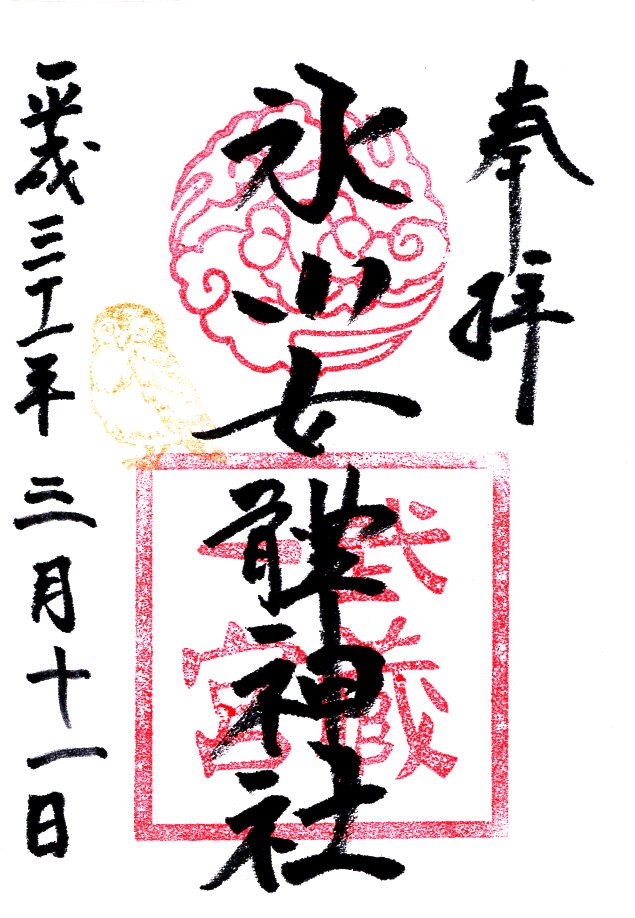 奉拝
氷川女體神社
武藏
一宮
平成三十一年三月十一日